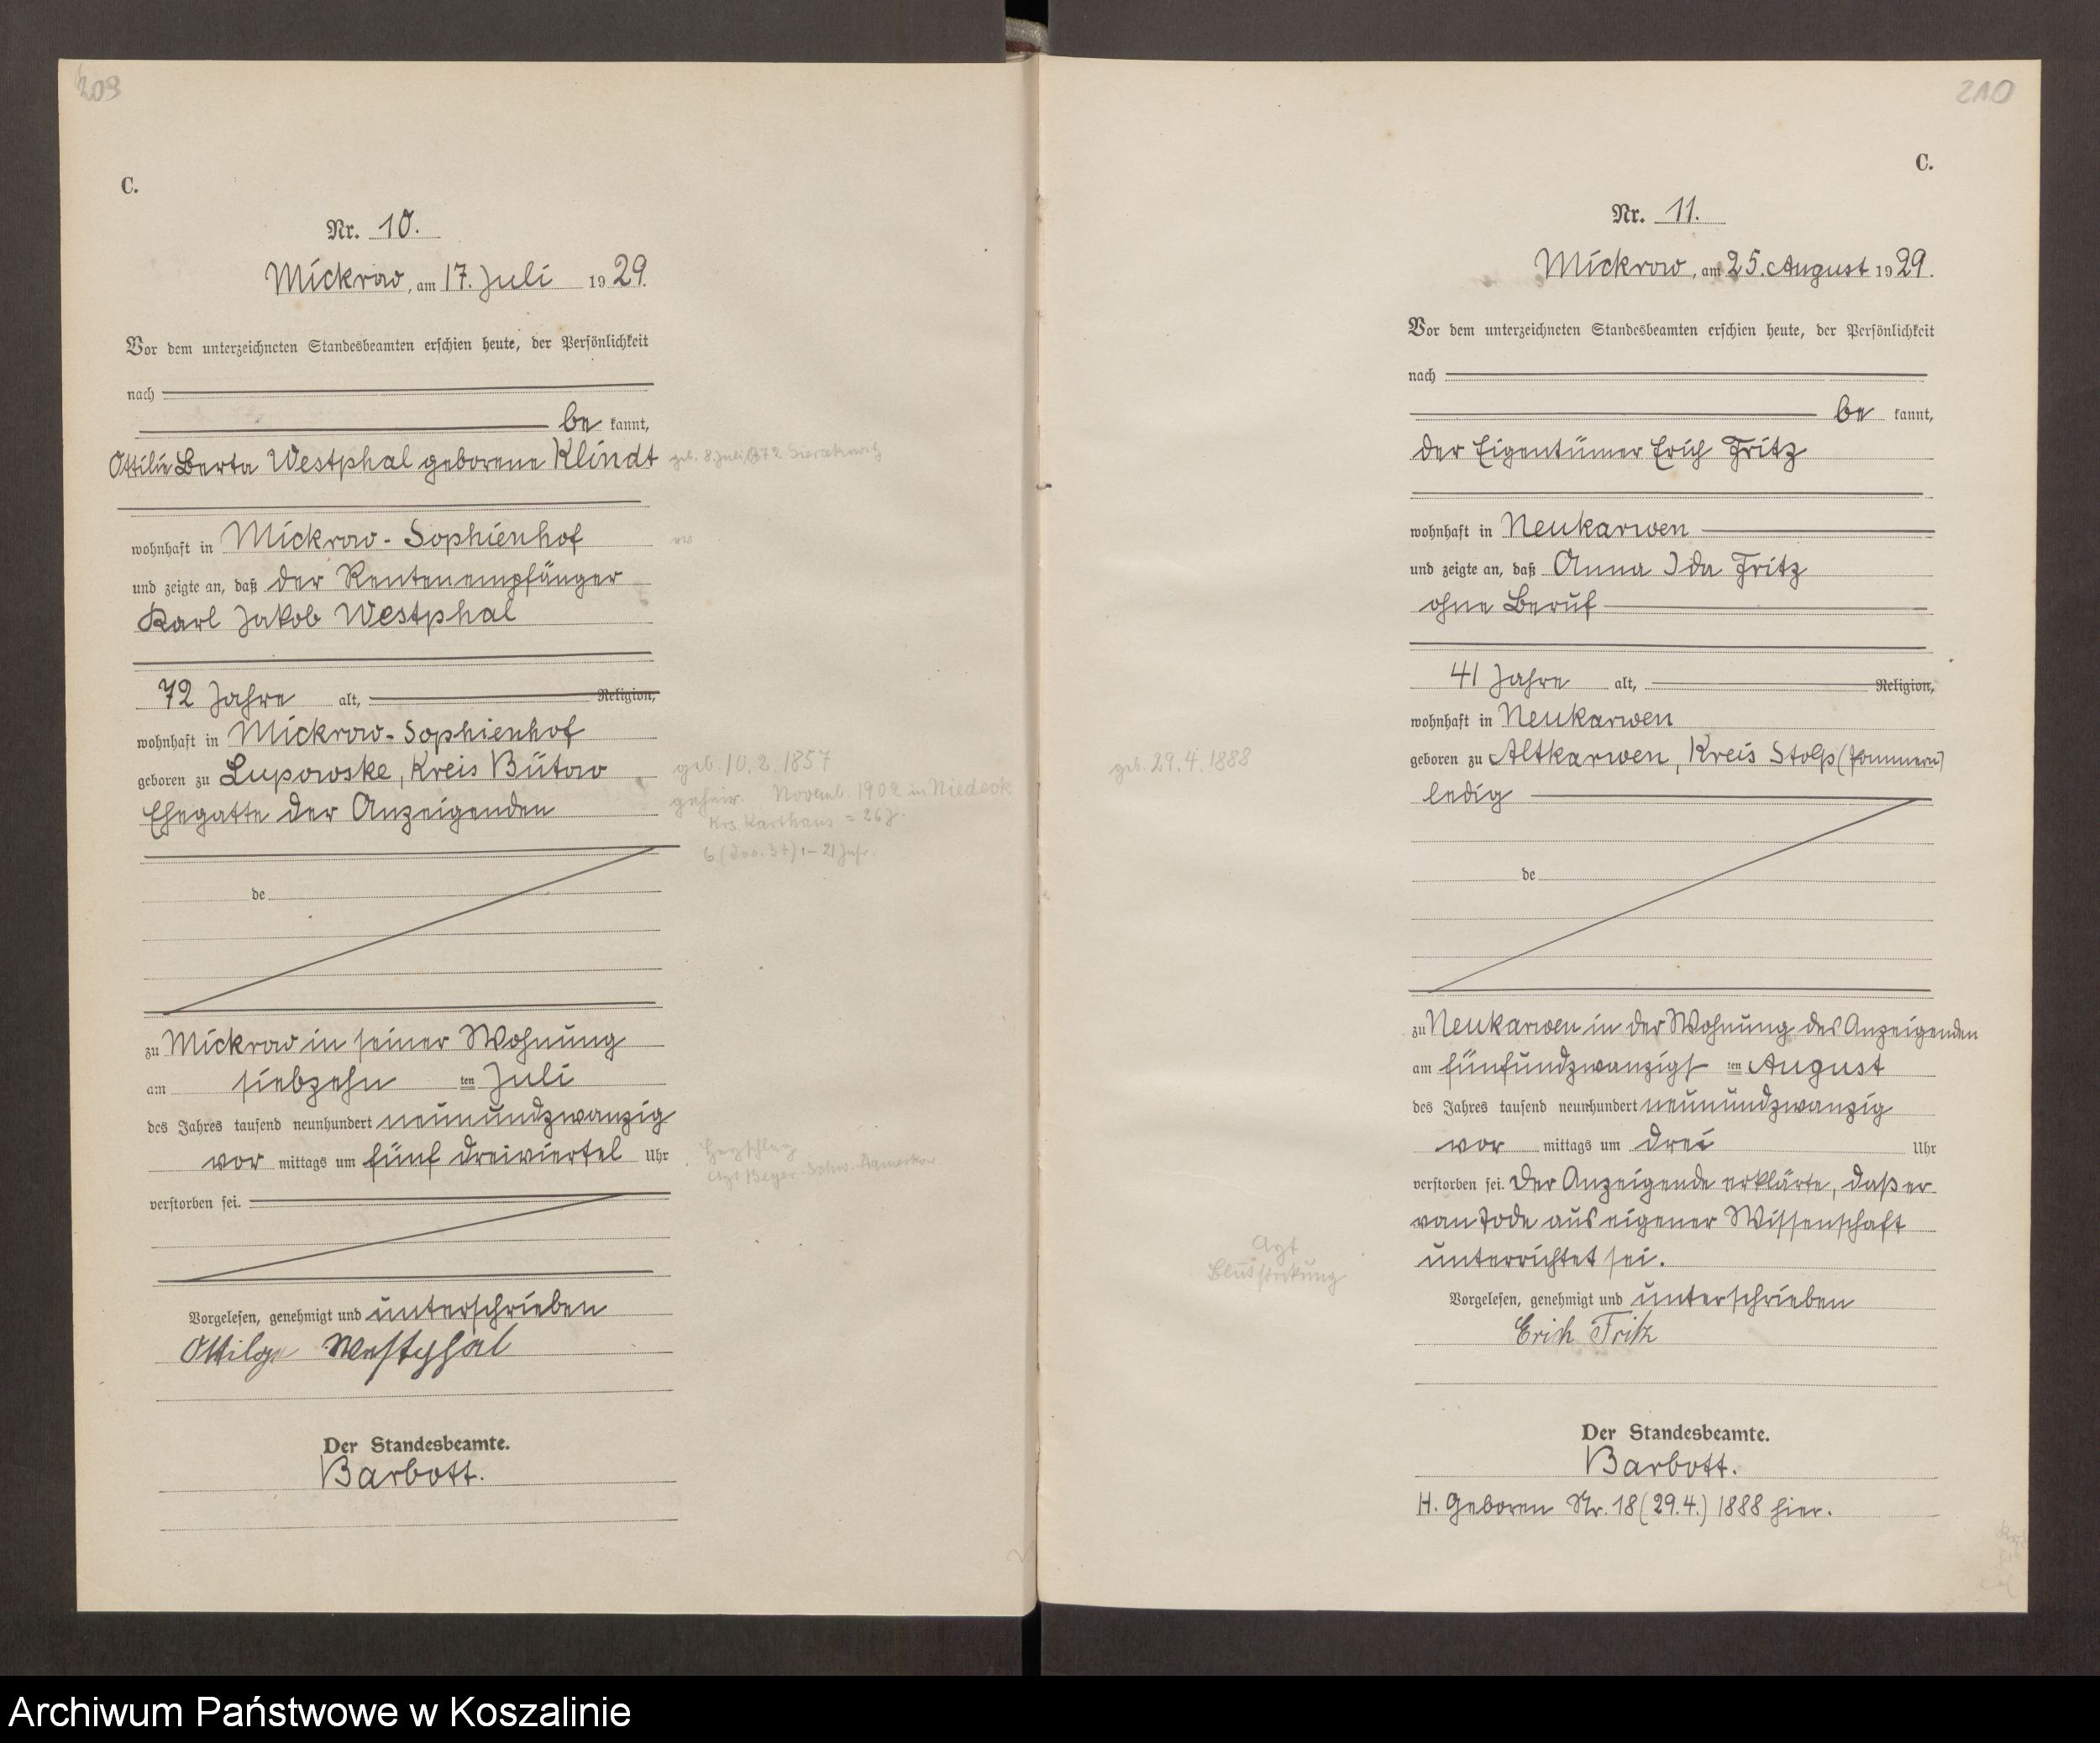 209
C.
Nr. 10.
Mickrow, am 17. Juli 1929.
Vor dem unterzeichneten Standesbeamten erschien heute, der Persönlichkeit
nach
be kannt,
Ottilie Berta Westphal geborene Klindt
geb. 8. Juli 1872
wohnhaft in Mickrow-Sophienhof
und zeigte an, daß der Rentenempfänger
Karl Jakob Westphal
72 Jahre alt, Religion,
wohnhaft in Mickrow-Sophienhof
geboren zu Lupowske, Kreis Bütow
geb. 10.2.1857
Ehegatte der Anzeigenden
geheir. Novemb. 1902 in
Krs. Karthaus = 26 J.
de
zu Mickrow in seiner Wohnung
am siebzehn ten Juli
des Jahres tausend neunhundert neunundzwanzig
vor mittags um fünf dreiviertel Uhr
Herzschlag
verstorben sei.
Vorgelesen, genehmigt und unterschrieben
Westphal
Der Standesbeamte.
Barbott.
210
C.
Nr. 11.
Mickrow, am 25. August 1929.
Vor dem unterzeichneten Standesbeamten erschien heute, der Persönlichkeit
nach
be kannt,
der Eigentümer Erich Fritz
wohnhaft in Neukarwen
und zeigte an, daß Anna Ida Fritz
ohne Beruf
41 Jahre alt, Religion,
wohnhaft in Neukarwen
geboren zu Altkarwen, Kreis Stolp (Pommern)
geb. 29.4.1888
ledig
de
zu Neukarwen in der Wohnung des Anzeigenden
am fünfundzwanzigst ten August
des Jahres tausend neunhundert neunundzwanzig
vor mittags um drei Uhr
verstorben sei. Der Anzeigende erklärte, daß er
vom Tode aus eigener Wissenschaft
unterrichtet sei.
Vorgelesen, genehmigt und unterschrieben
Erich Fritz
Der Standesbeamte.
Barbott.
H. Geboren Nr. 18 (29.4.) 1888 hier.
Archiwum Państwowe w Koszalinie